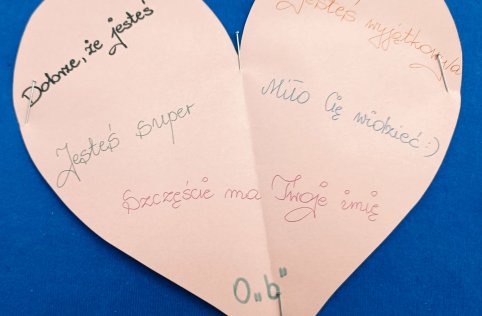 Dobrze, że jesteś
Jesteś wyjątkowy/a
Miło Cię widzieć :)
Jesteś super
Szczęście ma Twoje imię
O „b"